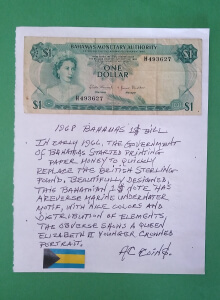 $1 BAHAMAS MONETARY AUTHORITY $1
H493627
ONE
DOLLAR
H493627
$1 $1
1968 BAHAMAS 1$ BILL
IN EARLY 1966, THE GOVERNMENT
OF BAHAMAS STARTED PRINTING
PAPER MONEY TO QUICKLY
REPLACE THE BRITISH STERLING-
POUND. BEAUTIFULLY DESIGNED,
THIS BAHAMIAN 1$ NOTE HAS
A REVERSE MARINE UNDERWATER
MOTIF, WITH NICE COLORS AND
DISTRIBUTION OF ELEMENTS,
THE OBVERSE SHOWS A QUEEN
ELIZABETH II YOUNGER CROWNED
PORTRAIT.